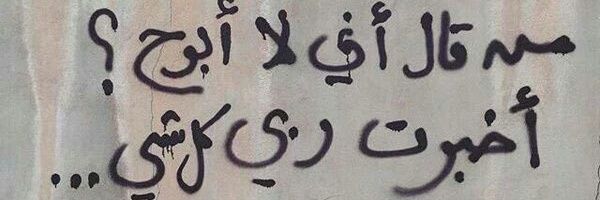 من قال أني لا أبوح ؟
أخبرت ربي كل شي...